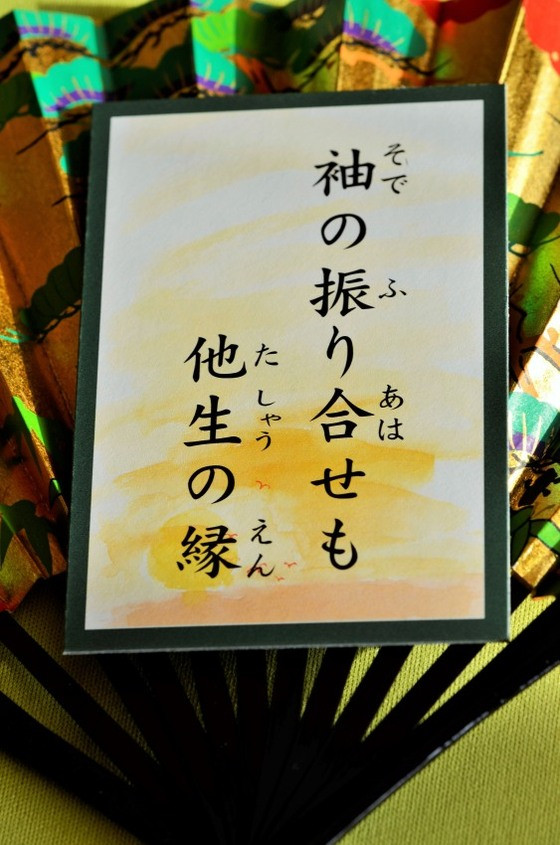 袖の振り合せも
そで ふ あは
他生の縁
たしゃう えん